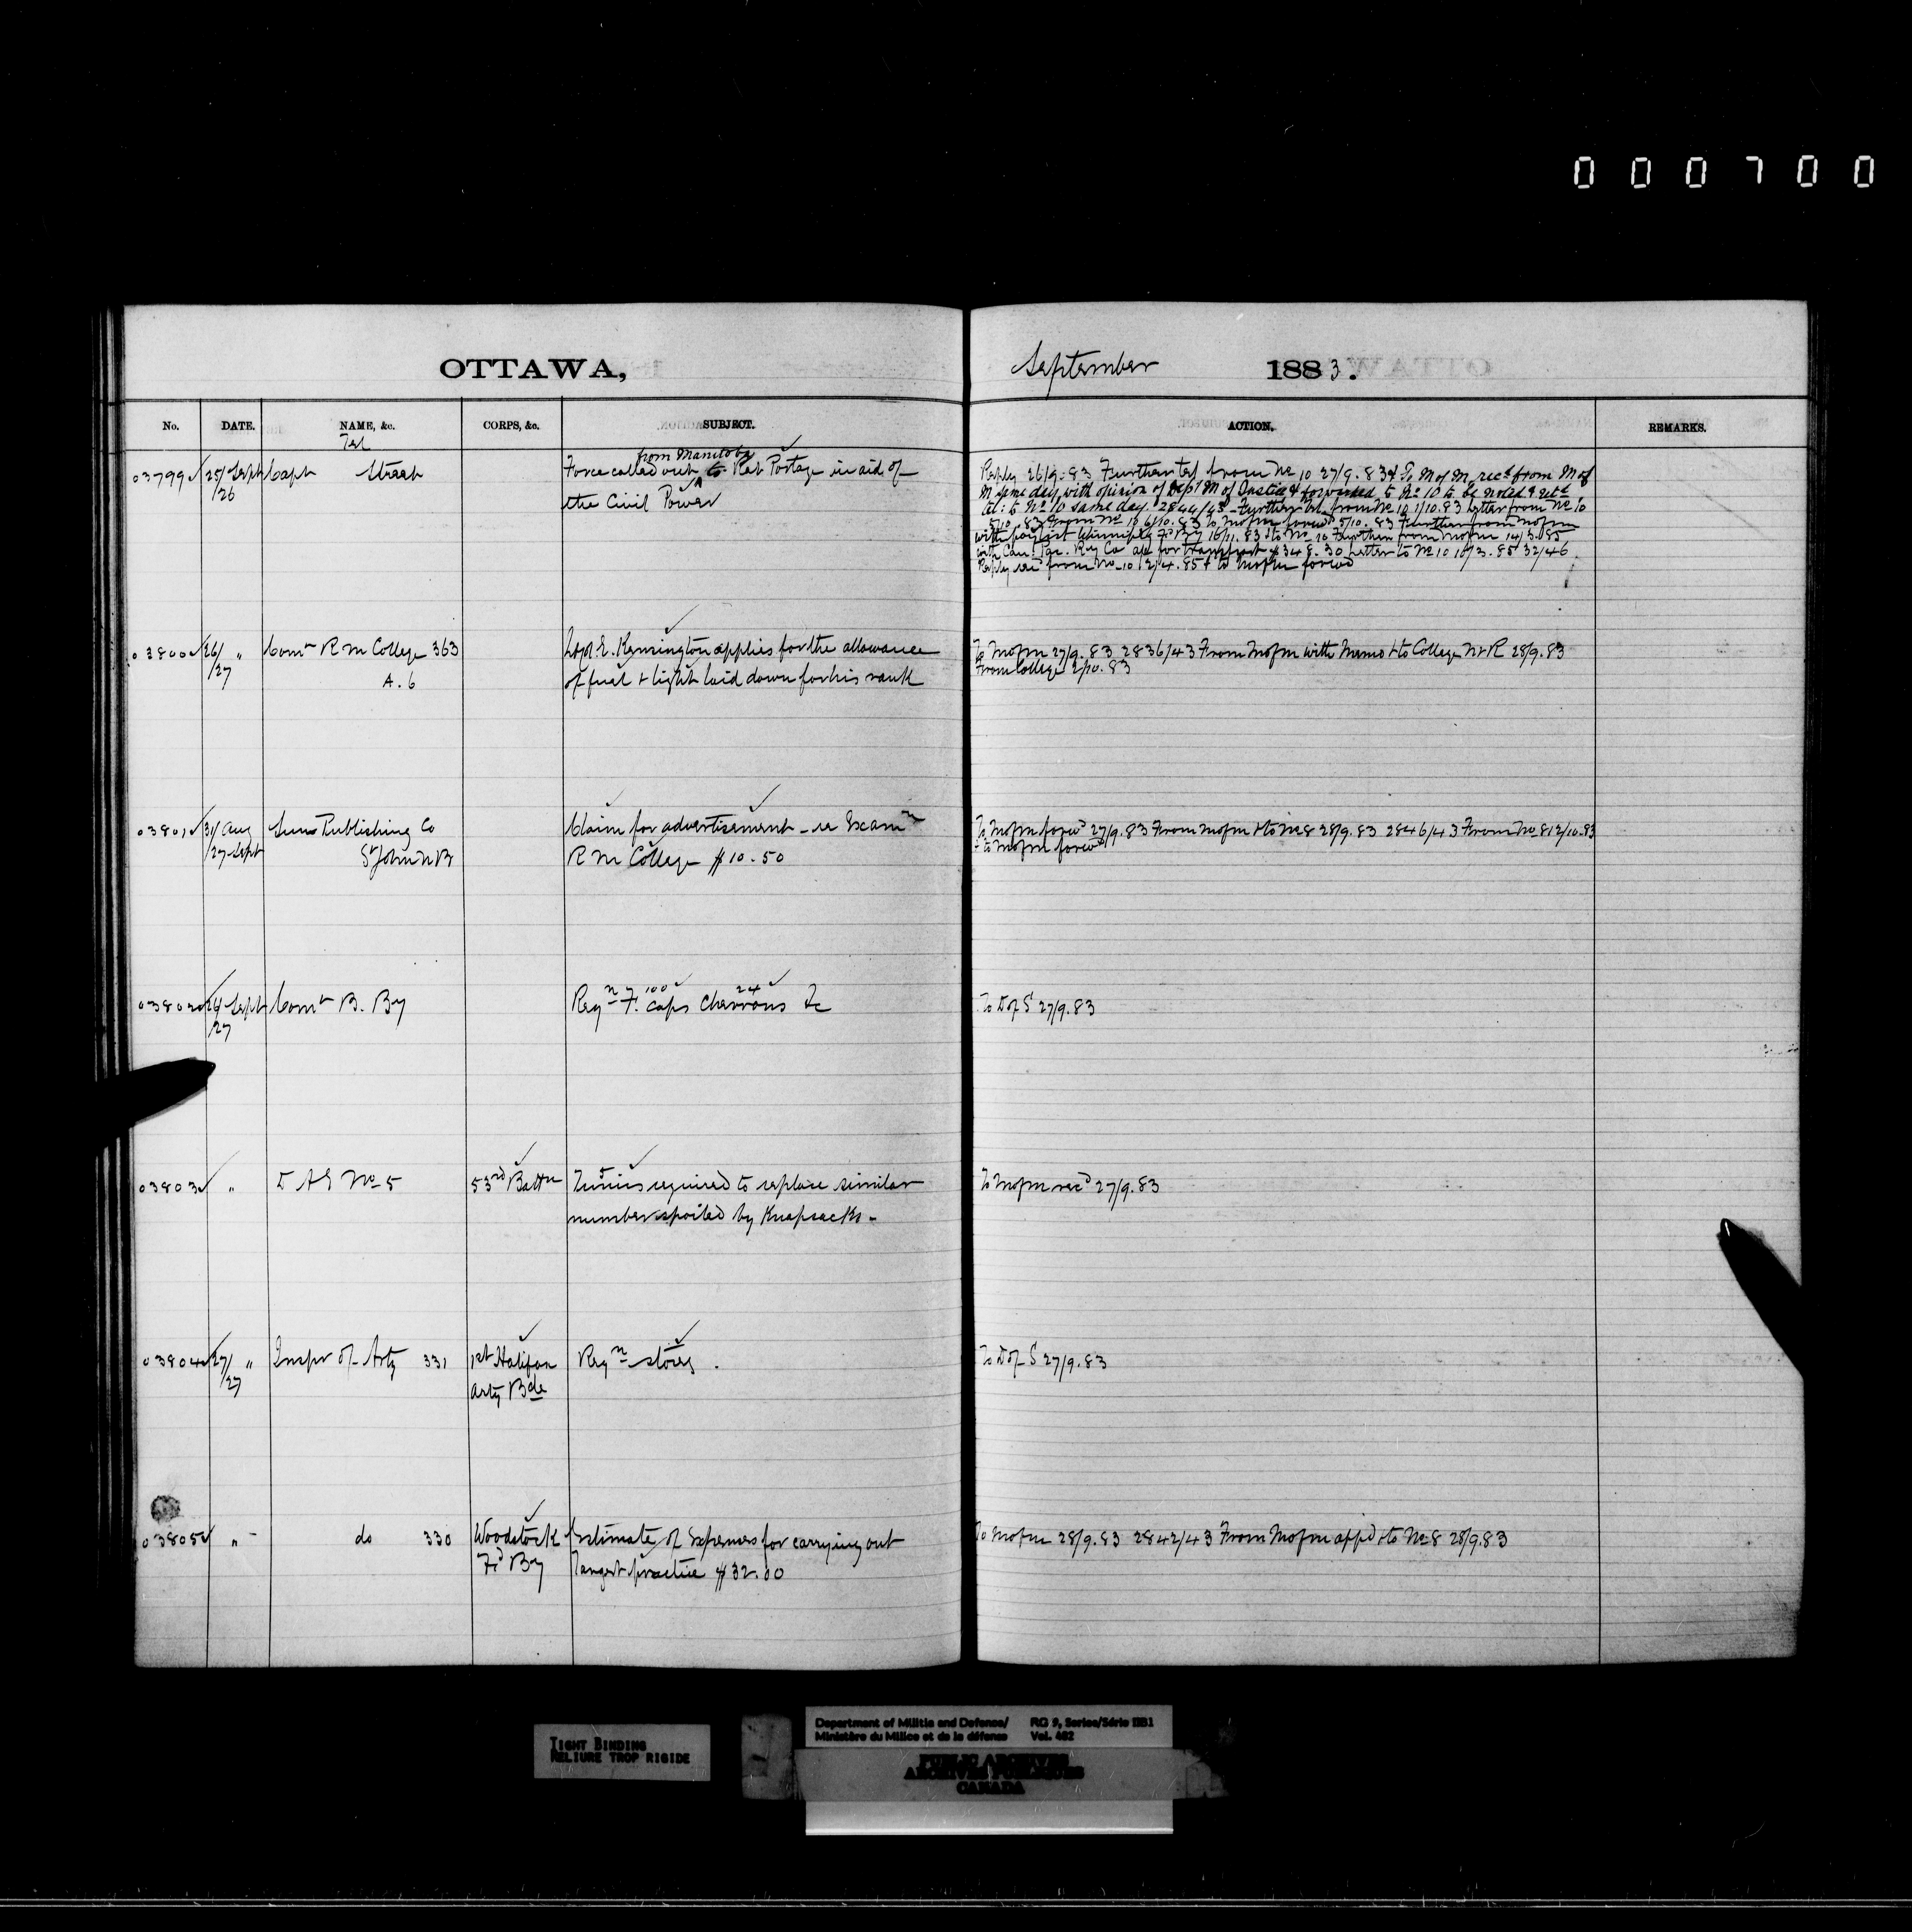 000700
OTTAWA,
September 1883.
No. DATE. NAME, &c. CORPS, &c. SUBJECT. ACTION. REMARKS.
Tel
03799 25/Sept Capt Street
/26
from Manitoba
Force called out to Rat Portage in aid of
the Civil Power
Reply 26/9.83 Further tel from No 10 27/9.83 & To M of M, recd from M of
M same day with opinion of Dept M of Justice & forwarded to No 10 to be noted & retd
tel: to No 10 same day. 2844/43 - Further tel. from No 10 1/10.83 letter from No 10
5/10.83 From No 10 6/10.83 to MofM forwd 5/10.83 Further from MofM
with paylist Winnipeg Fd By 16/11.83 & to No 10 Further from MofM 14/3.85
with Can. Pac. Ry Co a/c for transport $348.30 Letter to No 10 16/3.85 32/46
Reply rec from No 10 2/4.85 & to MofM forwd
03800 26/ " Comt R M College 363
/27 A. 6
E. Kensington applies for the allowance
of fuel & light laid down for his rank
To MofM 27/9.83 2836/43 From MofM with Memo & to College N & R 28/9.83
From College 2/10.83
03801 31/Aug Sun Publishing Co
/27 Sept St John N B
Claim for advertisement - re Examn
R M College $10.50
To MofM forwd 27/9.83 From MofM & to No 8 28/9.83 2846/43 From No 8 12/10.83
& to MofM forwd
03802 26 Sept Comt B. By
/27
100 24
Reqn F. Caps Chevrons &c
To D of S 27/9.83
03803 " D A G No 5 53rd Battn
5
Tunics required to replace similar
number spoiled by Knapsacks -
To MofM recd 27/9.83
03804 27/ " Inspr of Arty 331 1st Halifax
/27 Arty Bde
Reqn stores.
To D of S 27/9.83
03805 " - do 330 Woodstock
Fd By
Estimate of Expenses for carrying out
Target practice $32.00
To MofM 28/9.83 2842/43 From MofM appd & to No 8 28/9.83
TIGHT BINDING
RELIURE TROP RIGIDE
Department of Militia and Defence/
Ministère du Milice et de la défense
RG 9, Series/Série IIB1
Vol. 462
PUBLIC ARCHIVES
ARCHIVES PUBLIQUES
CANADA